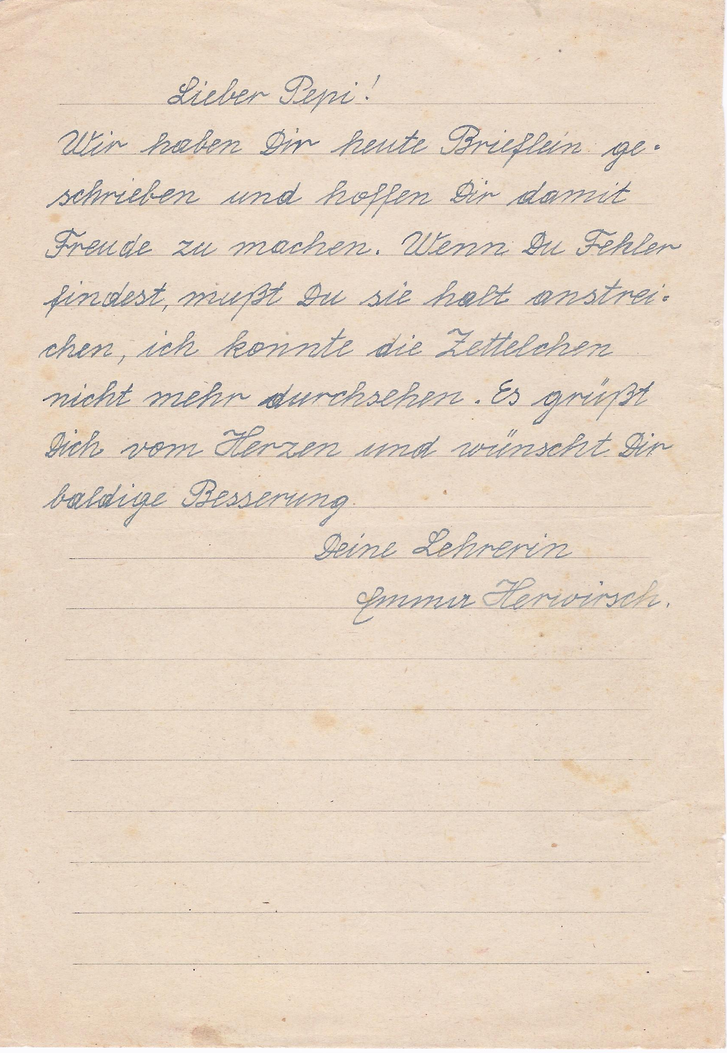 Lieber Pepi!
Wir haben Dir heute Brieflein ge-
schrieben und hoffen Dir damit
Freude zu machen. Wenn Du Fehler
findest, mußt Du sie halt anstrei-
chen, ich konnte die Zettelchen
nicht mehr durchsehen. Es grüßt
Dich vom Herzen und wünscht Dir
baldige Besserung
Deine Lehrerin
Emma Herwirsch.